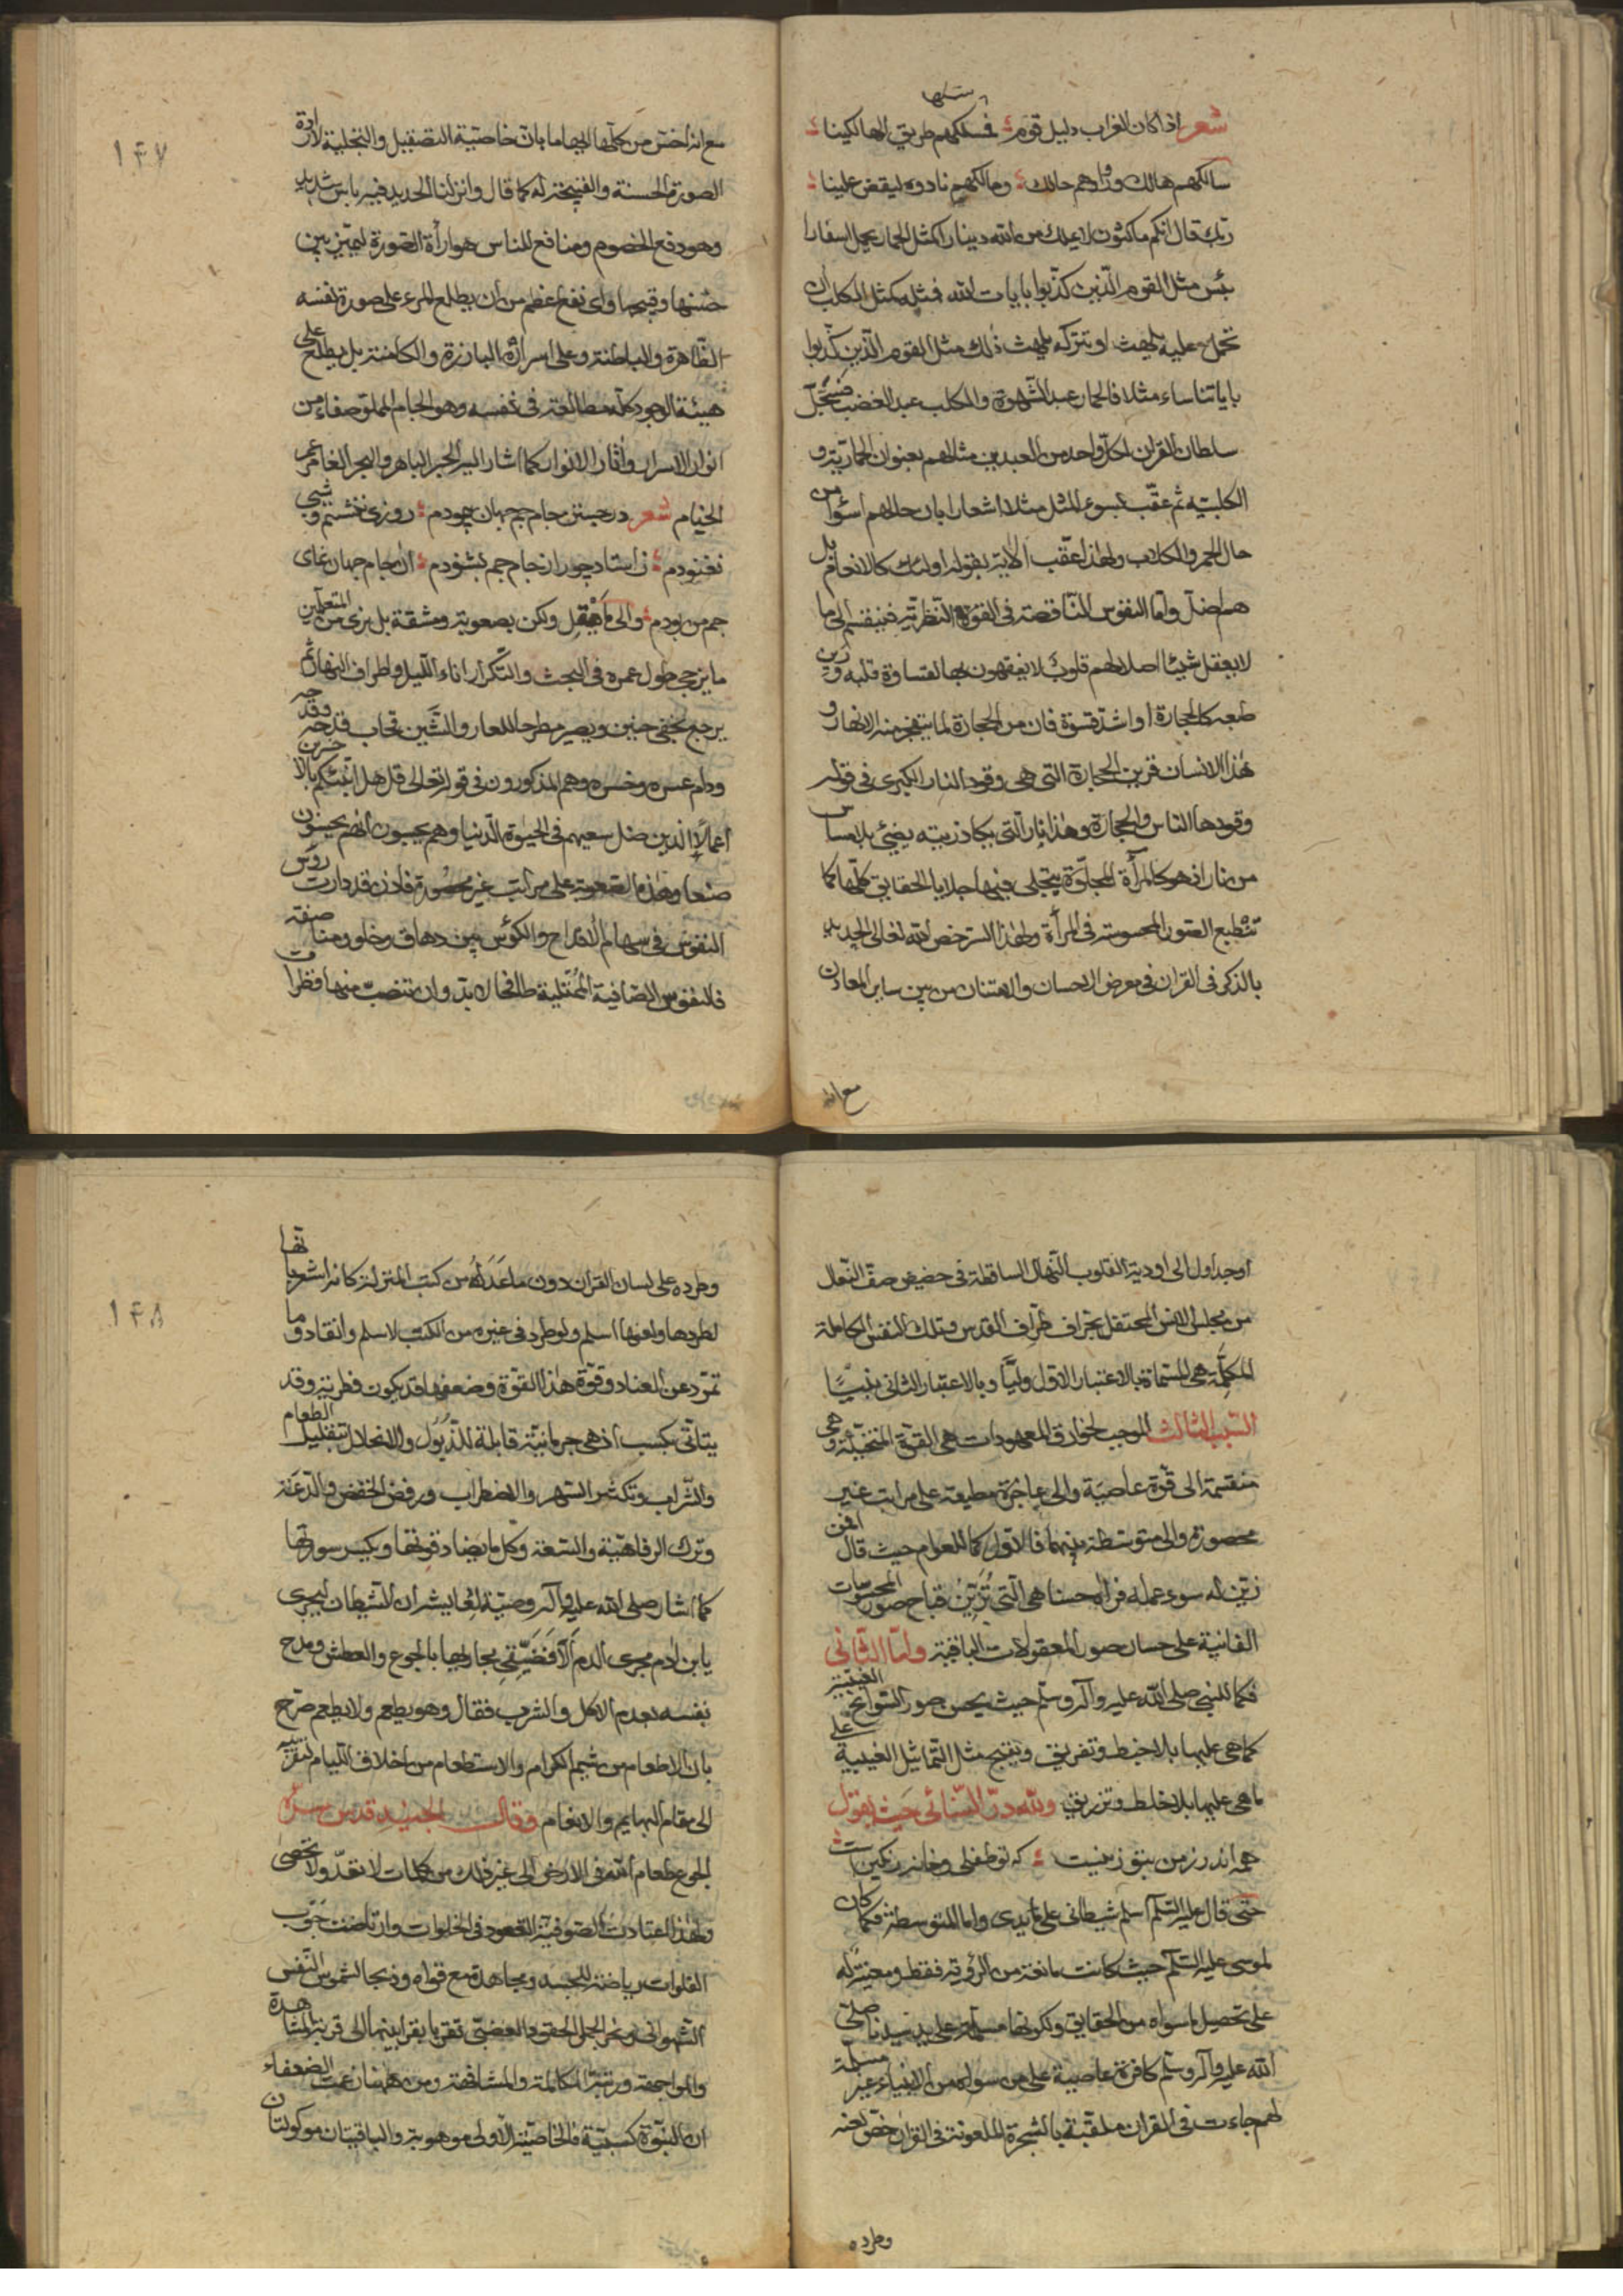 شعر اذا كان الغراب دليل قوم فمسلكهم طريق الهالكينا
سالكهم هالك وزادهم حالك ومالكهم نادوه ليقض علينا
ربك قال انكم ماكثون لا يملك من الله دينارا كمثل الحمار يحمل اسفارا
بئس مثل القوم الذين كذبوا بايات الله فمثله كمثل الكلب ان
تحمل عليه يلهث او تتركه يلهث ذلك مثل القوم الذين كذبوا
باياتنا ساء مثلا فالحمار عبد الشهوة والكلب عبد الغضب فسجل
سلطان القران لكل واحد من العبدين مثالهم بعنوان الحمارية و
الكلبية ثم عقب بسوء المثل مثلا اشعارا بان حالهم اسوأ من
حال الحمر والكلاب ولهذا عقب الاية بقوله اولئك كالانعام بل
هم اضل واما النفوس الناقصة في القوة النظرية فينقسم الى ما
لا يعقل شيئا اصلا لهم قلوب لا يفقهون بها لقساوة قلبه ورين
طبعه كالحجارة او اشد قسوة فان من الحجارة لما يتفجر منه الانهار و
هذا الانسان قرين الحجارة التي هي وقود النار الكبرى في قوله
وقودها الناس والحجارة وهذا نار التي يكاد زيته يضيئ بلا مساس
من نار اذ هو كالمرأة المجلوة يتجلى فيها جلايا الحقايق كلها كما
تنطبع الصور المحسوسة في المرأة ولهذا السر خص الله تعالى الحديد
بالذكر في القران في معرض الاحسان والامتنان من بين ساير المعادن
مع انه
١٤٧
مع انه اخس من كلها الا بهاما بان خاصية التصقيل والتجلية لارادة
الصورة الحسنة والقبيحة له كما قال وانزلنا الحديد فيه باس شديد
وهو دفع الخصوم ومنافع للناس هو ارأة الصورة ليميز بين
حسنها وقبيحها واى نفع اعظم من ان يطلع المرء على صورة نفسه
الظاهرة والباطنة وعلى اسراره البارزة والكامنة بل يطلع على
هيئة الوجود كله مطالعة في نفسه وهو الجام المملو صفاء من
انوار الاسرار واثار الانوار كما اشار اليه الحبر الباهر والبحر الغامر عمر
الخيام شعر در جستن جام جم جهان پيمودم روزى ننشستم وشبى
نغنودم ز استاد چو راز جام جم بشنودم ان جام جهان نماى
جم من بودم والى ما يعقل ولكن بصعوبة ومشقة بل نرى من المتعلمين
ما يزجى طول عمره في البحث والتكرار اناء الليل واطراف النهار ثم
يرجع بخفى حنين ويصير مطرحا للعار والشين فخاب قدحه وقدحه
ودام عسره وخسره وهم المذكورون في قوله تعالى قل هل انبئكم بالاخسرين
اعمالا الذين ضل سعيهم في الحيوة الدنيا وهم يحسبون انهم يحسنون
صنعا وهذه الصعوبة على مراتب غير محصورة فاذن قد دارت رؤس
النفوس في سهام الاقداح والكؤس بين دهاق وخلو ومناصفة
فالنفوس الصافية الممتلية طافحا لا بد وان تنصب منها فطرات
اوجداول الى اودية القلوب النهال الساقطة في حضيض صف النعال
من مجلس الانس المحتفل بحراف ظراف القدس وتلك النفس الكاملة
المكملة هي المسماة بالاعتبار الاول وليا وبالاعتبار الثانى نبيا
السبب الثالث الموجب لخوارق المعهودات هي القوة المتخيلة وهي
منقسمة الى قوة عاصية والى عاجزة مطيعة على مراتب غير
محصورة والى متوسطة بينهما فالاول كما للعوام حيث قال افمن
زين له سوء عمله فراه حسنا هي التي تزين قباح صور المحسوسات
الفانية على حسان صور المعقولات الباقية واما الثانى
فكما للنبي صلى الله عليه وآله وسلم حيث يحس صور السوانح الغيبية
كما هي عليها بلا خبط وتفريق وينتج مثل التماثيل الغيبية على
ما هي عليها بلا خلط وتزريق ولله در السنائى حيث يقول
همه اندرز من بتو زينست كه تو طفلى وخانه رنگين است
حتى قال عليه السلم اسلم شيطانى على يدى واما المتوسطة فكما كان
لموسى عليه السلم حيث كانت مانعة من الرؤية فقط ومعينة له
على تحصيل ما سواه من الحقايق ولكونها مسلمة على يد سيدنا صلى
الله عليه وآله وسلم كافرة عاصية على من سواه من الانبياء غير مسلمة
لهم جاءت في القران ملقبة بالشجرة الملعونة في القران خص لعنه
وطرده
١٤٨
وطرده على لسان القران دون ما عداه من كتب المنزلة كانه اشعر بانها
لطردها ولعنها اسلم ولو طرد في غيره من الكتب لاسلم وانقاد وما
تمرد عن العناد وقوة هذا القوة وضعفها قد يكون فطرية وقد
يتأتى بكسب اذ هي جرمانية قابلة للذبول والانحلال بتقليل الطعام
والشراب وتكثير السهر والاضطراب ورفض الخفض والدعة
وترك الرفاهية والسعة وكل ما يضاد قوتها ويكسر سورتها
كما اشار صلى الله عليه وآله وصيته لعايشة ان الشيطان ليجرى
يا بن ادم مجرى الدم الا فضيقى مجاريها بالجوع والعطش ومدح
نفسه بعدم الاكل والشرب فقال وهو يطعم ولا يطعم صرح
بان الاطعام من شيم الكرام والاستطعام من اخلاق اللئام لتقربه
الى مقام البهايم والانعام وقال الجنيد قدس سره
الجوع طعام الله في الارض الى غير ذلك من كلمات لا تعد ولا تحصى
ولهذا اعتادت الصوفية القعود في الخلوات وارتاضت جوب
الفلوات رياضة للجسد ومجاهدة مع قواه وذبحا لشموس النفس
الشهوانى ونحر الجمل الحقود الغضبى تقربا بقرابينها الى قربة المشاهدة
والمواجهة ورتبة المكالمة والمشافهة ومن ههنا زعمت الضعفاء
ان النبوة كسبية فالخاصية الاولى موهوبة والباقيتان موكولتان